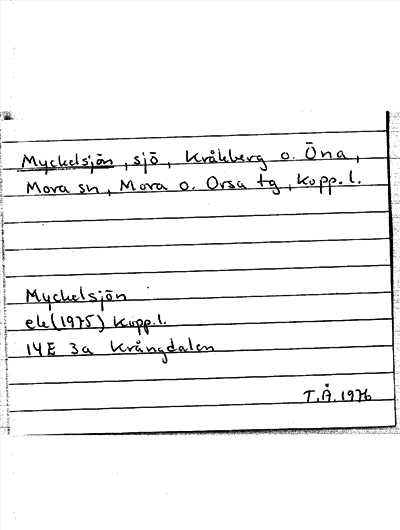 Myckelsjön, sjö, Kråkberg o. Öna,
Mora sn, Mora o. Orsa tg, Kopp.l.
Myckelsjön
ek(1975) Kopp.l.
14E 3a Krångdalen
T.Å. 1976